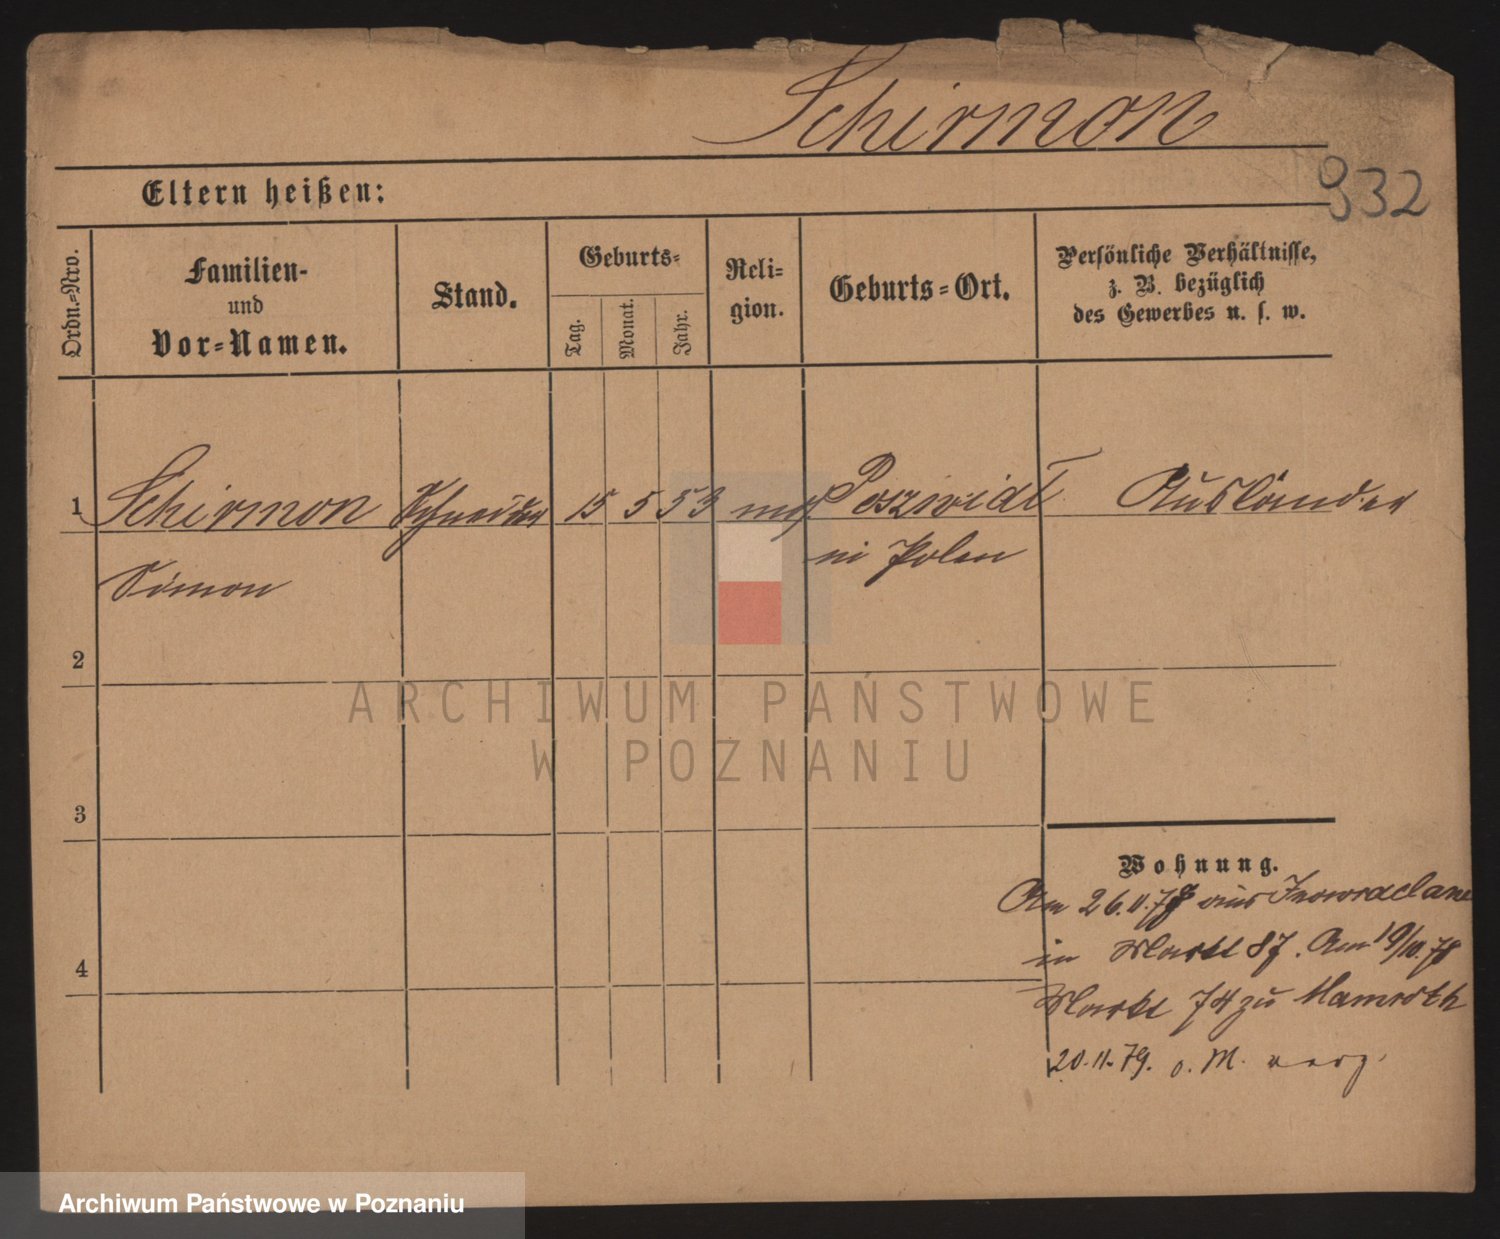 Schirmon
932
Eltern heißen:
Ordn.=Nro.
Familien-
und
Vor=Namen.
Stand.
Geburts=
Tag.
Monat.
Jahr.
Reli=
gion.
Geburts=Ort.
Persönliche Verhältnisse,
z. B. bezüglich
des Gewerbes u. s. w.
1 Schirmon Schneider 15 5 53 Ausländer
Simon in Polen
2
ARCHIWUM PAŃSTWOWE
W POZNANIU
3
Wohnung.
Am 26.11.78 aus Inowraclaw
in Markt 87. Am 19/11.78
4
Markt 74 zu Hamroth
20.11.79. o. M. verz.
Archiwum Państwowe w Poznaniu